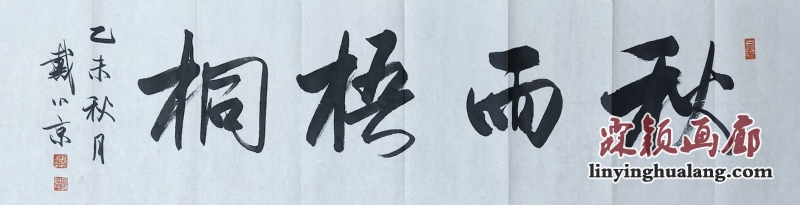 秋雨梧桐
乙未秋月
戴小京
霖颖画廊
linyinghualang.com